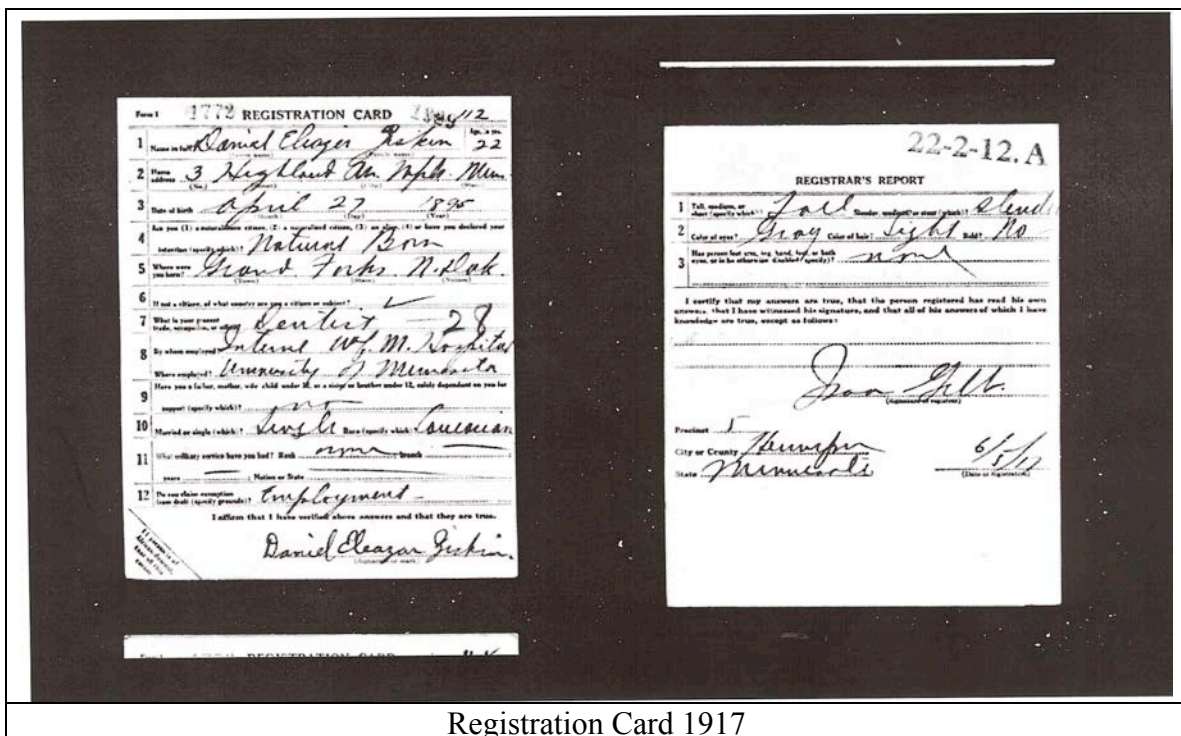 Form 1 1772 REGISTRATION CARD 112
1 Name in full Daniel Eleazer Ziskin Age, in yrs. 22
(Given name) (Family name)
2 Home address 3 Highland Av. Mpls. Minn
(No.) (Street) (City) (State)
3 Date of birth April 27 1895
(Month) (Day) (Year)
4 Are you (1) a natural-born citizen, (2) a naturalized citizen, (3) an alien, (4) or have you declared your
intention (specify which)? Natural Born
5 Where were you born? Grand Forks N. Dak.
(Town) (State) (Nation)
6 If not a citizen, of what country are you a citizen or subject?
7 What is your present trade, occupation, or office? Dentist 28
8 By whom employed? Interne Hospital
Where employed? University of Minnesota
9 Have you a father, mother, wife, child under 12, or a sister or brother under 12, solely dependent on you for
support (specify which)?
10 Married or single (which)? Single Race (specify which)? Caucasian
11 What military service have you had? Rank none ; branch ;
years ; Nation or State
12 Do you claim exemption from draft (specify grounds)? Employment
I affirm that I have verified above answers and that they are true.
Daniel Eleazar Ziskin.
(Signature or mark)
If person is of African descent, tear off this corner
REGISTRATION CARD
22-2-12. A
REGISTRAR'S REPORT
1 Tall, medium, or short (specify which)? Tall Slender, medium, or stout (which)? Slender
2 Color of eyes? Gray Color of hair? Light Bald? No
3 Has person lost arm, leg, hand, foot, or both eyes, or is he otherwise disabled (specify)? none
I certify that my answers are true, that the person registered has read his own
answers, that I have witnessed his signature, and that all of his answers of which I have
knowledge are true, except as follows:
(Signature of registrar)
Precinct 5
City or County Hennepin
State Minnesota 6/5/17
(Date of registration)
Registration Card 1917